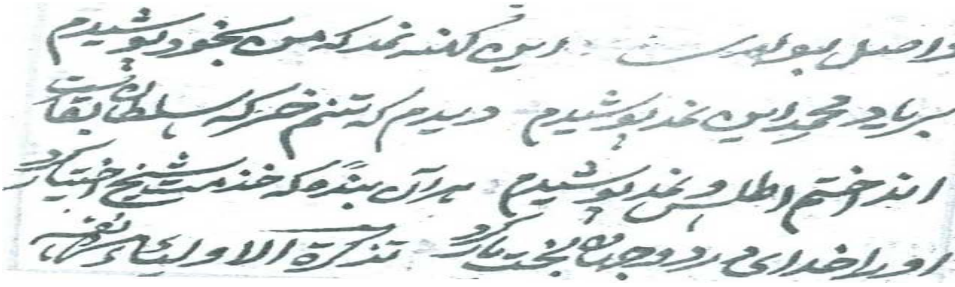 واصل بواست این کهنه نمد که من بخود پوشیدم
بر یاد محمد این نمد پوشیدم دیدم که تنم خرگه سلطان بقاست
انداختم اطلس و نمد پوشیدم هر آن بنده که خدمت شیخ اختیار کرد
او را خدای در دو جهان بختیار کرد تذکرة الاولیاء